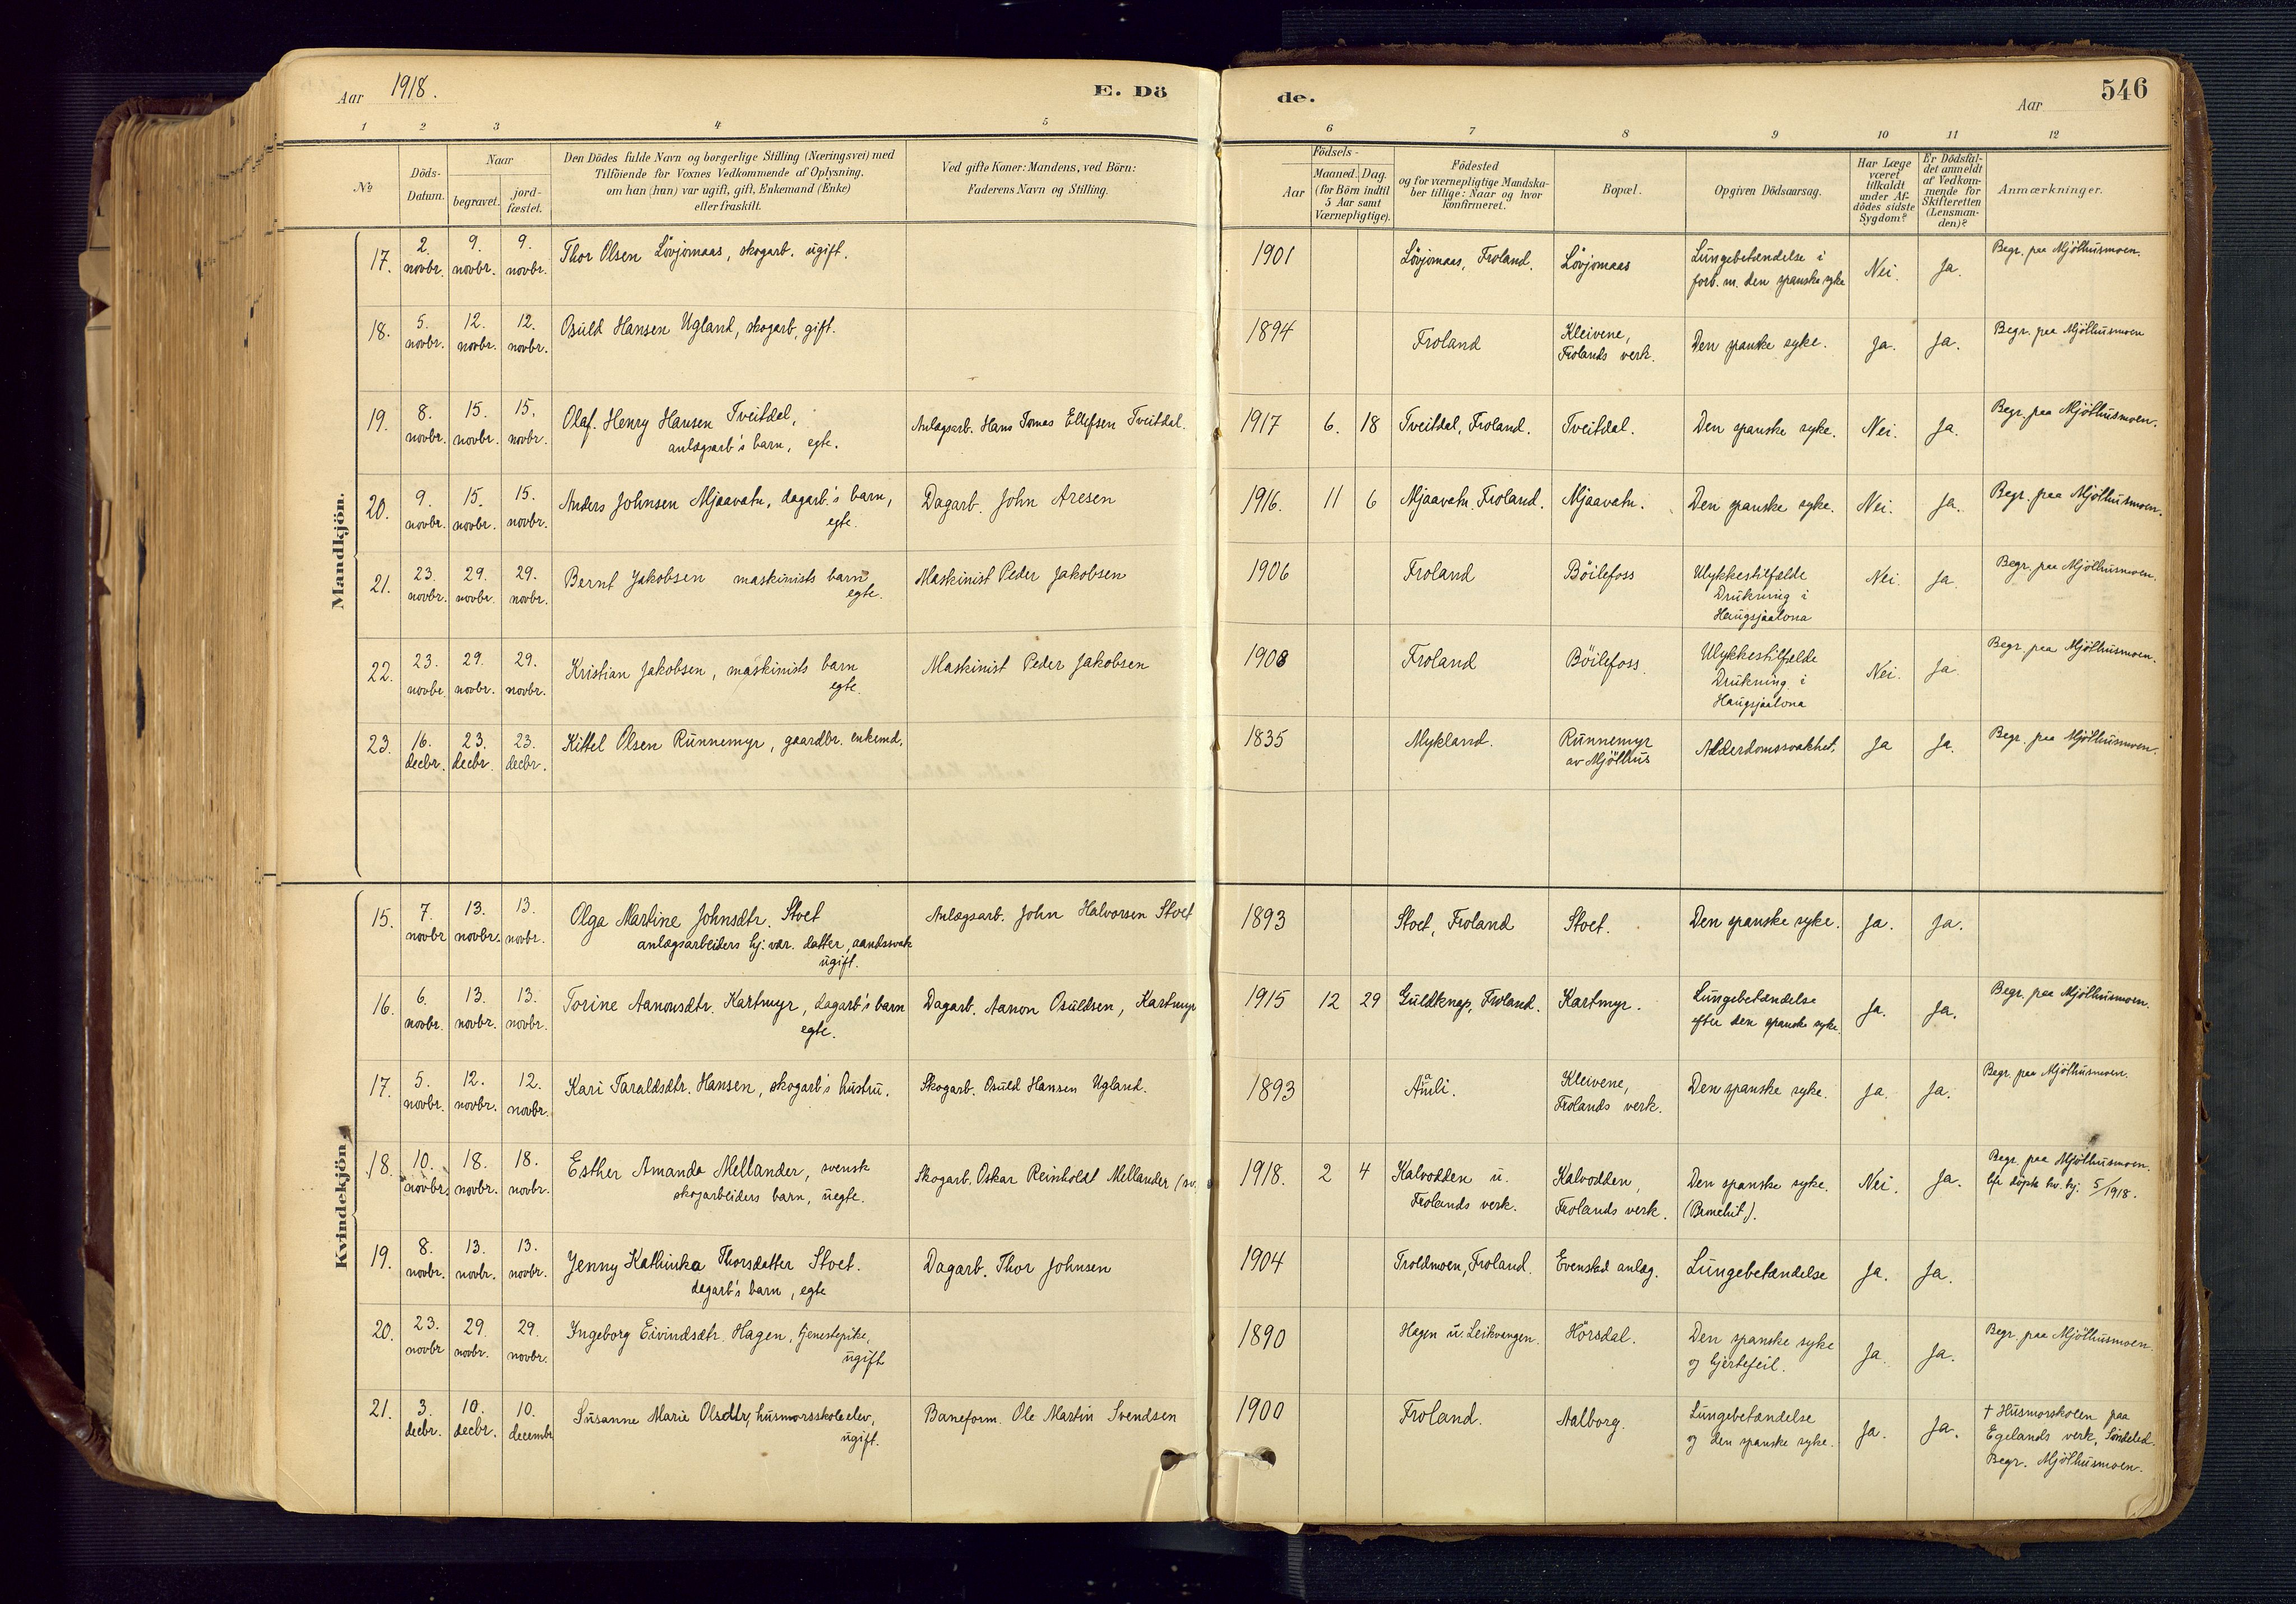 Aar 1918.
E. Dö
1 2 3 4 5
№
Döds-Datum.
Naar
begravet.
jordfæstet.
Den Dödes fulde Navn og borgerlige Stilling (Næringsvei) med
Tilföiende for Voxnes Vedkommende af Oplysning,
om han (hun) var ugift, gift, Enkemand (Enke)
eller fraskilt.
Ved gifte Koner: Mandens, ved Börn:
Faderens Navn og Stilling.
de.
Aar
546
6 7 8 9 10 11 12
Födsels-
Aar
Maaned. Dag.
(for Börn indtil
5 Aar samt
Værnepligtige).
Födested
og for værnepligtige Mandska-
ber tillige: Naar og hvor
konfirmeret.
Bopæl.
Opgiven Dödsaarsag.
Har Læge
været
tilkaldt
under Af-
dödes sidste
Sygdom?
Er Dödsfal-
det anmeldt
af Vedkom-
mende for
Skifteretten
(Lensman-
den)?
Anmærkninger.
Mandkjön.
17. 2. novbr. 9. novbr. 9. novbr. Thor Olsen Lövjomaas, skogarb. ugift. 1901 Lövjomaas, Froland. Lövjomaas Lungebetændelse i
forb. m. den spanske syke Nei. Ja. Begr. paa Mjölhusmoen.
18. 5. novbr. 12. novbr. 12. novbr. Osuld Hansen Ugland, skogarb, gift. 1894 Froland Kleivene,
Frolands verk. Den spanske syke. Ja. Ja. Begr. paa Mjölhusmoen
19. 8. novbr. 15. novbr. 15. novbr. Olaf. Henry Hansen Tveitdal,
anlægsarb's barn, egte. Anlægsarb. Hans Tomas Ellefsen Tveitdal. 1917 6. 18 Tveitdal, Froland. Tveitdal. Den spanske syke. Nei. Ja. Begr. paa Mjölhusmoen.
20. 9. novbr. 15. novbr. 15. novbr. Anders Johnsen Mjaavatn, dagarb.'s barn,
egte. Dagarb. John Aresen 1916. 11 6 Mjaavatn. Froland. Mjaavatn. Den spanske syke. Nei. Ja. Begr. paa Mjölhusmoen.
21. 23. novbr. 29. novbr. 29. novbr. Bernt Jakobsen maskinists barn
egte. Maskinist Peder Jakobsen 1906 Froland Böilefoss Ulykkestilfælde
Drukning i
Haugsjaalona Nei. Ja. Begr. paa Mjölhusmoen.
22. 23. novbr. 29. novbr. 29. novbr. Kristian Jakobsen, maskinists barn
egte. Maskinist Peder Jakobsen 1908 Froland Böilefoss. Ulykkestilfælde
Drukning i
Haugsjaalona Nei. Ja. Begr. paa Mjölhusmoen.
23. 16. decbr. 23. decbr. 23. decbr. Kittel Olsen Runnemyr, gaardbr. enkemd, 1835 Mykland. Runnemyr
av Mjölhus Alderdomssvakhet. Ja Ja. Begr. paa Mjölhusmoen.
Kvindekjön
15. 7. novbr 13. novbr. 13. novbr. Olga Martine Johnsdtr. Stoet
anlægsarbeiders hj. vær. datter, aandssvak
ugift. Anlægsarb. John Halvorsen Stoet 1893 Stoet, Froland Stoet. Den spanske syke. Ja. Ja.
16. 6. novbr. 13. novbr. 13. novbr. Torine Aanonsdtr. Kartmyr, dagarb's barn
egte. Dagarb. Aanon Osuldsen, Kartmyr 1915 12 29 Guldknap, Froland. Kartmyr. Lungebetændelse
efter den spanske syke. Ja. Ja. Begr. paa Mjölhusmoen.
17. 5. novbr. 12. novbr. 12. novbr. Kari Taraldsdtr. Hansen, skogarb's hustru. Skogarb. Osuld Hansen Ugland. 1893 Aamli. Kleivene,
Frolands verk. Den spanske syke. Ja. Ja. Begr. paa Mjölhusmoen.
18. 10. novbr. 18. novbr. 18. novbr. Esther Amanda Mellander, svensk
skogarbeiders barn, uegte. Skogarb. Oskar Reinholdt Mellander (sv. 1918. 2 4 Kalvodden u.
Frolands verk. Kalvodden,
Frolands verk. Den spanske syke.
(Bronchit.). Nei. Ja. Begr. paa Mjölhusmoen.
döpt hv. hj. 5/1918.
19. 8. novbr. 13. novbr. 13. novbr. Jenny Kathinka Thorsdatter Stoet.
dagarb's barn, egte Dagarb. Thor Johnsen 1904 Troldmoen, Froland. Evenstad anlæg. Lungebetændelse Ja. Ja.
20. 23. novbr 29. novbr. 29. novbr. Ingeborg Eivindsdtr. Hagen, tjenestepike,
ugift 1890 Hagen u. Leikvangen. Hörsdal. Den spanske syke
og hjertefeil. Ja. Ja. Begr. paa Mjölhusmoen.
21. 3. decbr. 10. decbr. 10. decembr Susanne Marie Olsdtr, husmorsskoleelev,
ugift. Baneform. Ole Martin Svendsen 1900 Froland. Aalborg. Lungebetændelse
og den spanske syke. Ja. Ja. † Husmorskolen paa
Egelands verk, Söndeled.
Begr. Mjölhusmoen.